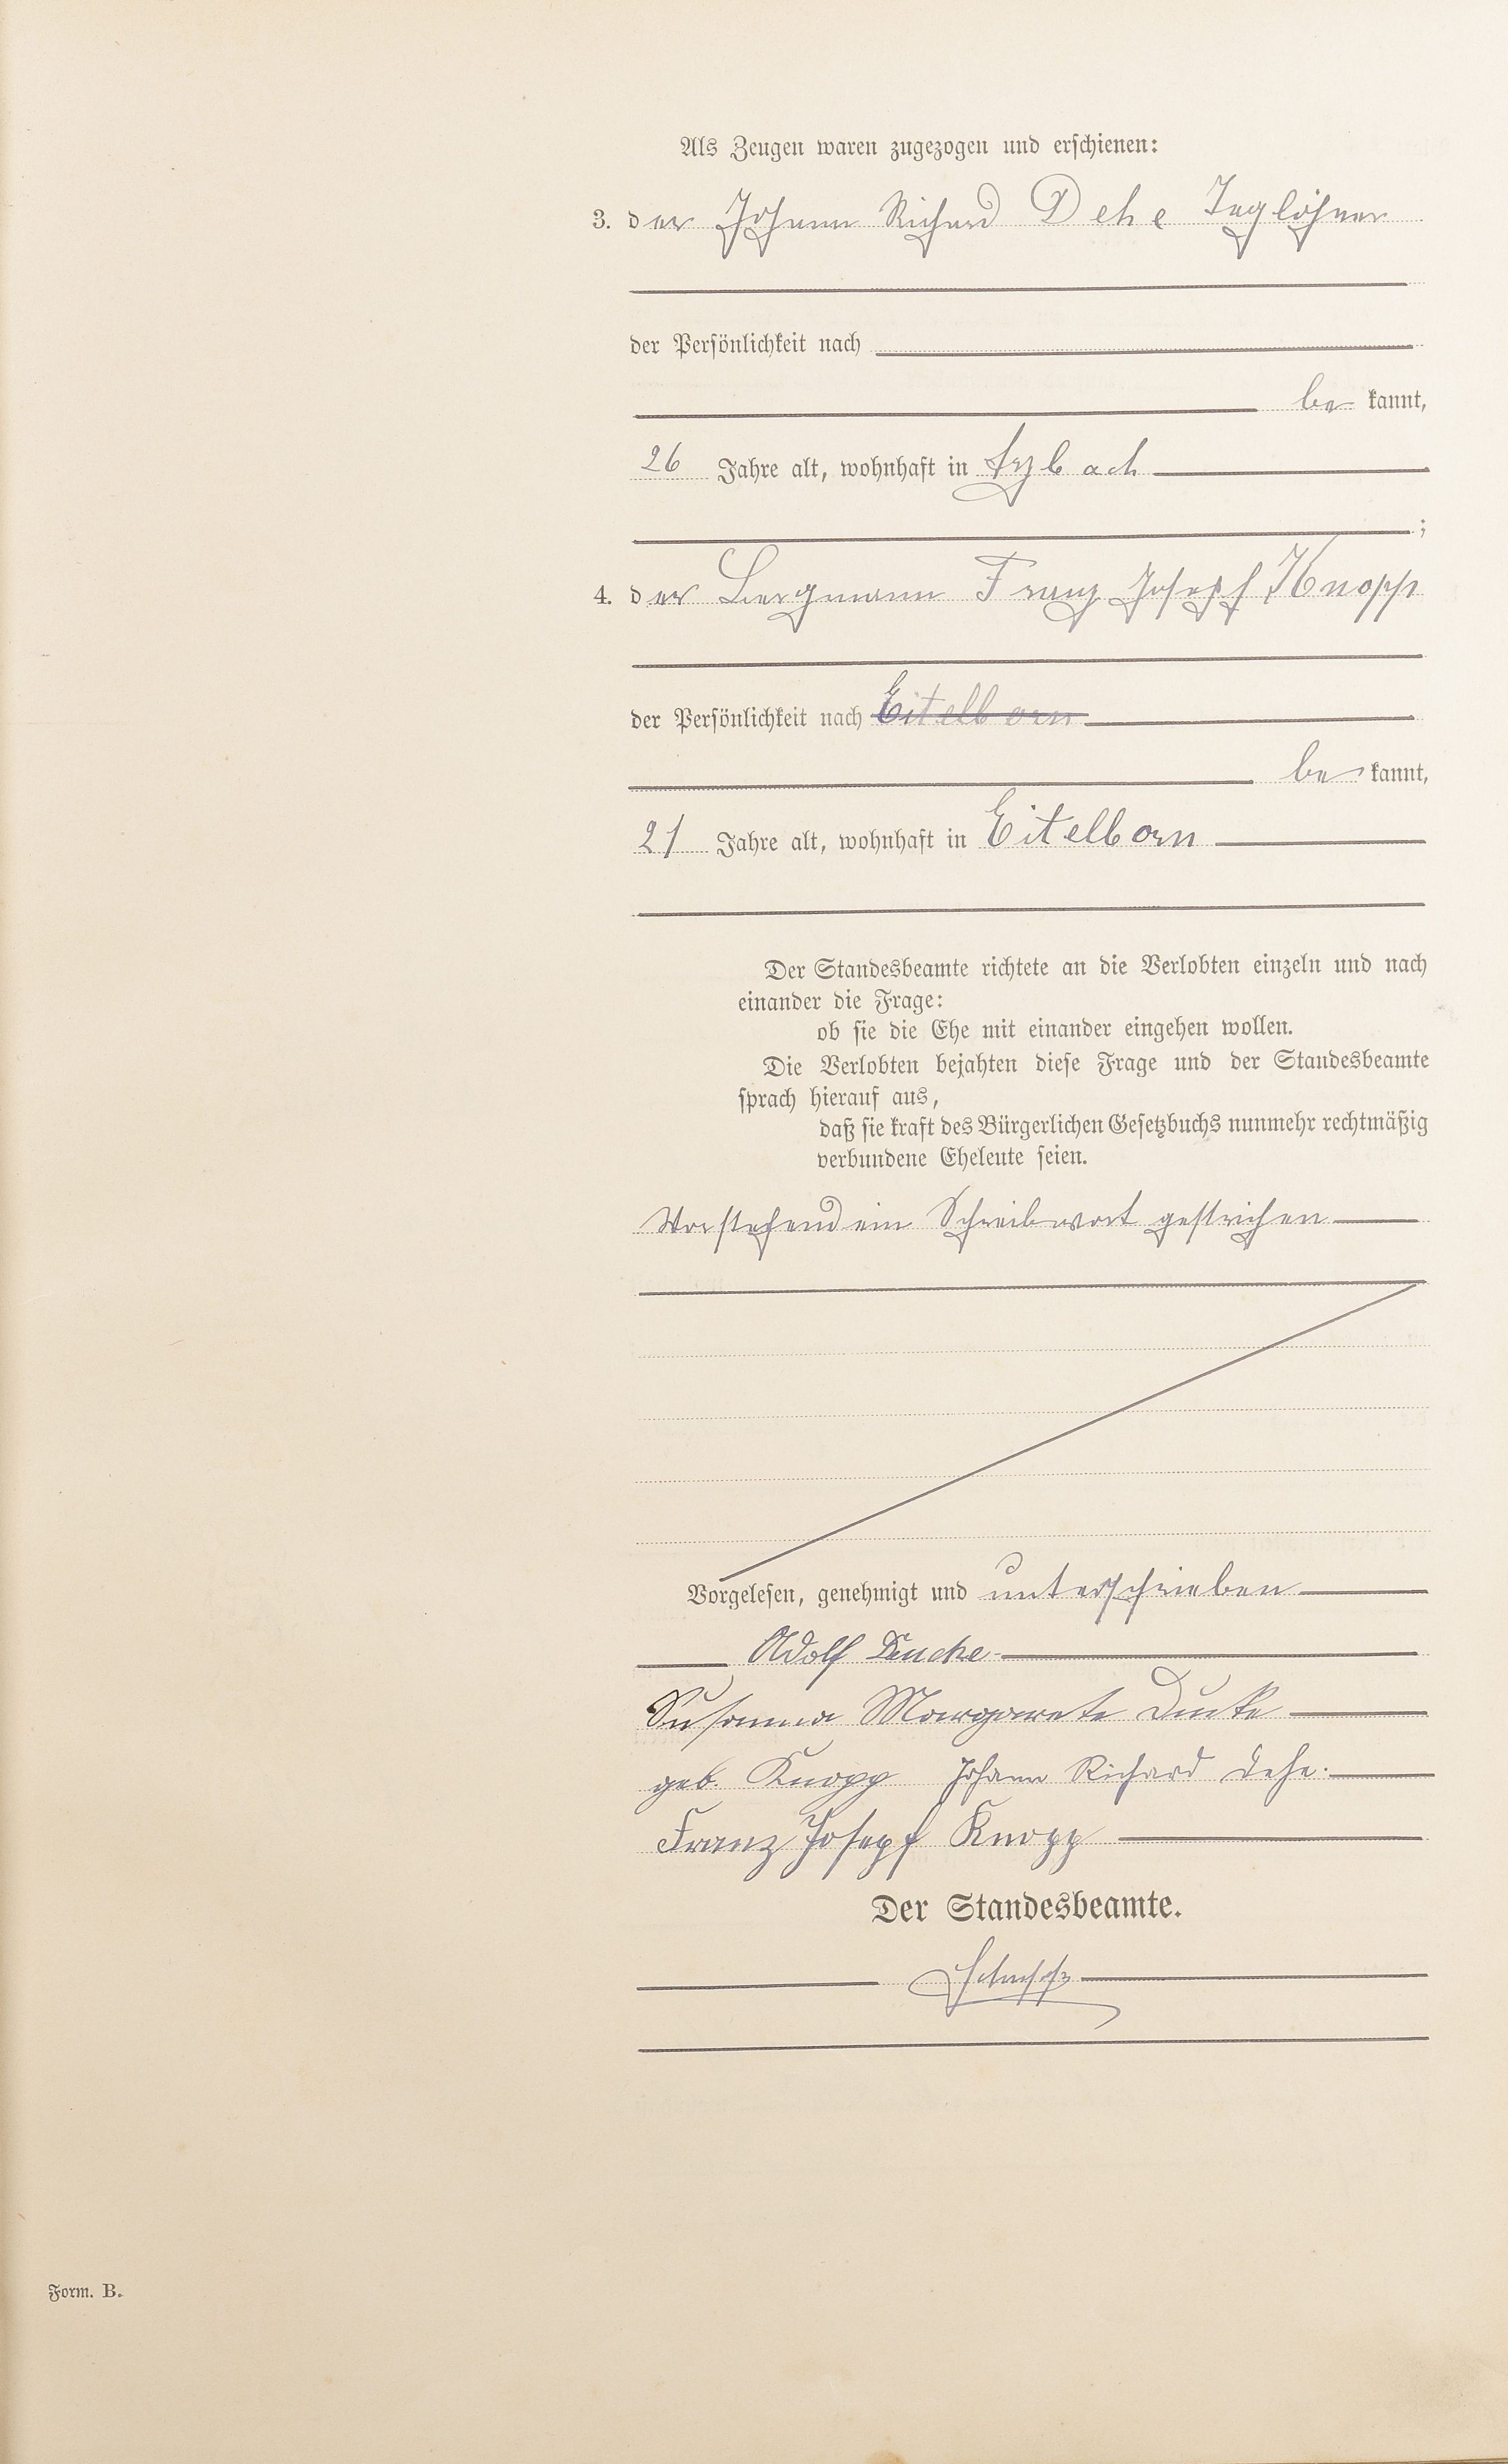 Als Zeugen waren zugezogen und erschienen:
3. der Johann Richard Dehe Taglöhner
der Persönlichkeit nach
be kannt,
26 Jahre alt, wohnhaft in Arzbach
;
4. der Bergmann Franz Josef Knopp
der Persönlichkeit nach Eitelborn
be kannt,
21 Jahre alt, wohnhaft in Eitelborn
Der Standesbeamte richtete an die Verlobten einzeln und nach
einander die Frage:
ob sie die Ehe mit einander eingehen wollen.
Die Verlobten bejahten diese Frage und der Standesbeamte
sprach hierauf aus,
daß sie kraft des Bürgerlichen Gesetzbuchs nunmehr rechtmäßig
verbundene Eheleute seien.
Vorstehend ein Schreibwort gestrichen
Vorgelesen, genehmigt und unterschrieben
Adolf
Susanna Margarete
geb. Knopp Johann Richard Dehe.
Franz Josepf Knopp
Der Standesbeamte.
Form. B.